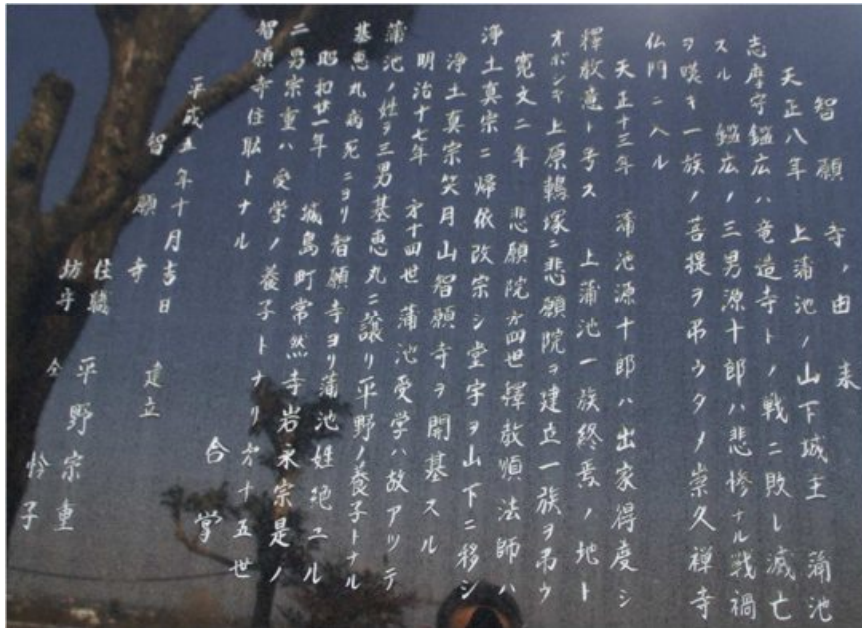 智願寺ノ由来
天正八年　上蒲池ノ山下城主　蒲池
志摩守鑑広ハ竜造寺トノ戦ニ敗レ滅亡
スル　鑑広ノ三男源十郎ハ悲惨ナル戦禍
ヲ嘆キ一族ノ菩提ヲ弔ウタメ崇久禅寺
仏門ニ入ル
天正十三年　蒲池源十郎ハ出家得度シ
釋教意ト号ス　上蒲池一族終焉ノ地ト
オボシキ上原鶴塚ニ悲願院ヲ建立一族ヲ弔ウ
寛文二年　悲願院才四世釋教順法師ハ
浄土真宗ニ帰依改宗シ堂宇ヲ山下ニ移シ
浄土真宗笑月山智願寺ヲ開基スル
明治十七年　才十四世　蒲池愛学ハ故アッテ
蒲池ノ姓ヲ三男基恵丸ニ譲リ平野ノ養子トナル
基恵丸病死ニヨリ智願寺ヨリ蒲池姓絶ユル
昭和廿一年　城島町常然寺岩永宗是ノ
二男宗重ハ愛学ノ養子トナリ才十五世
智願寺住職トナル
合掌
平成五年十月吉日　建立
智願寺
住職　平野宗重
坊守　仝　怜子